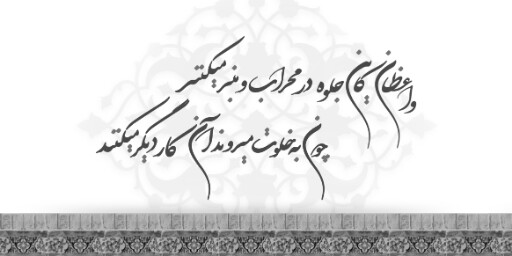 واعظان کاین جلوه در محراب و منبر میکنند
چون به خلوت میروند آن کار دیگر میکنند